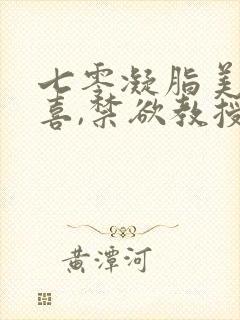 七零凝脂美
喜,禁欲教授
黄潭河